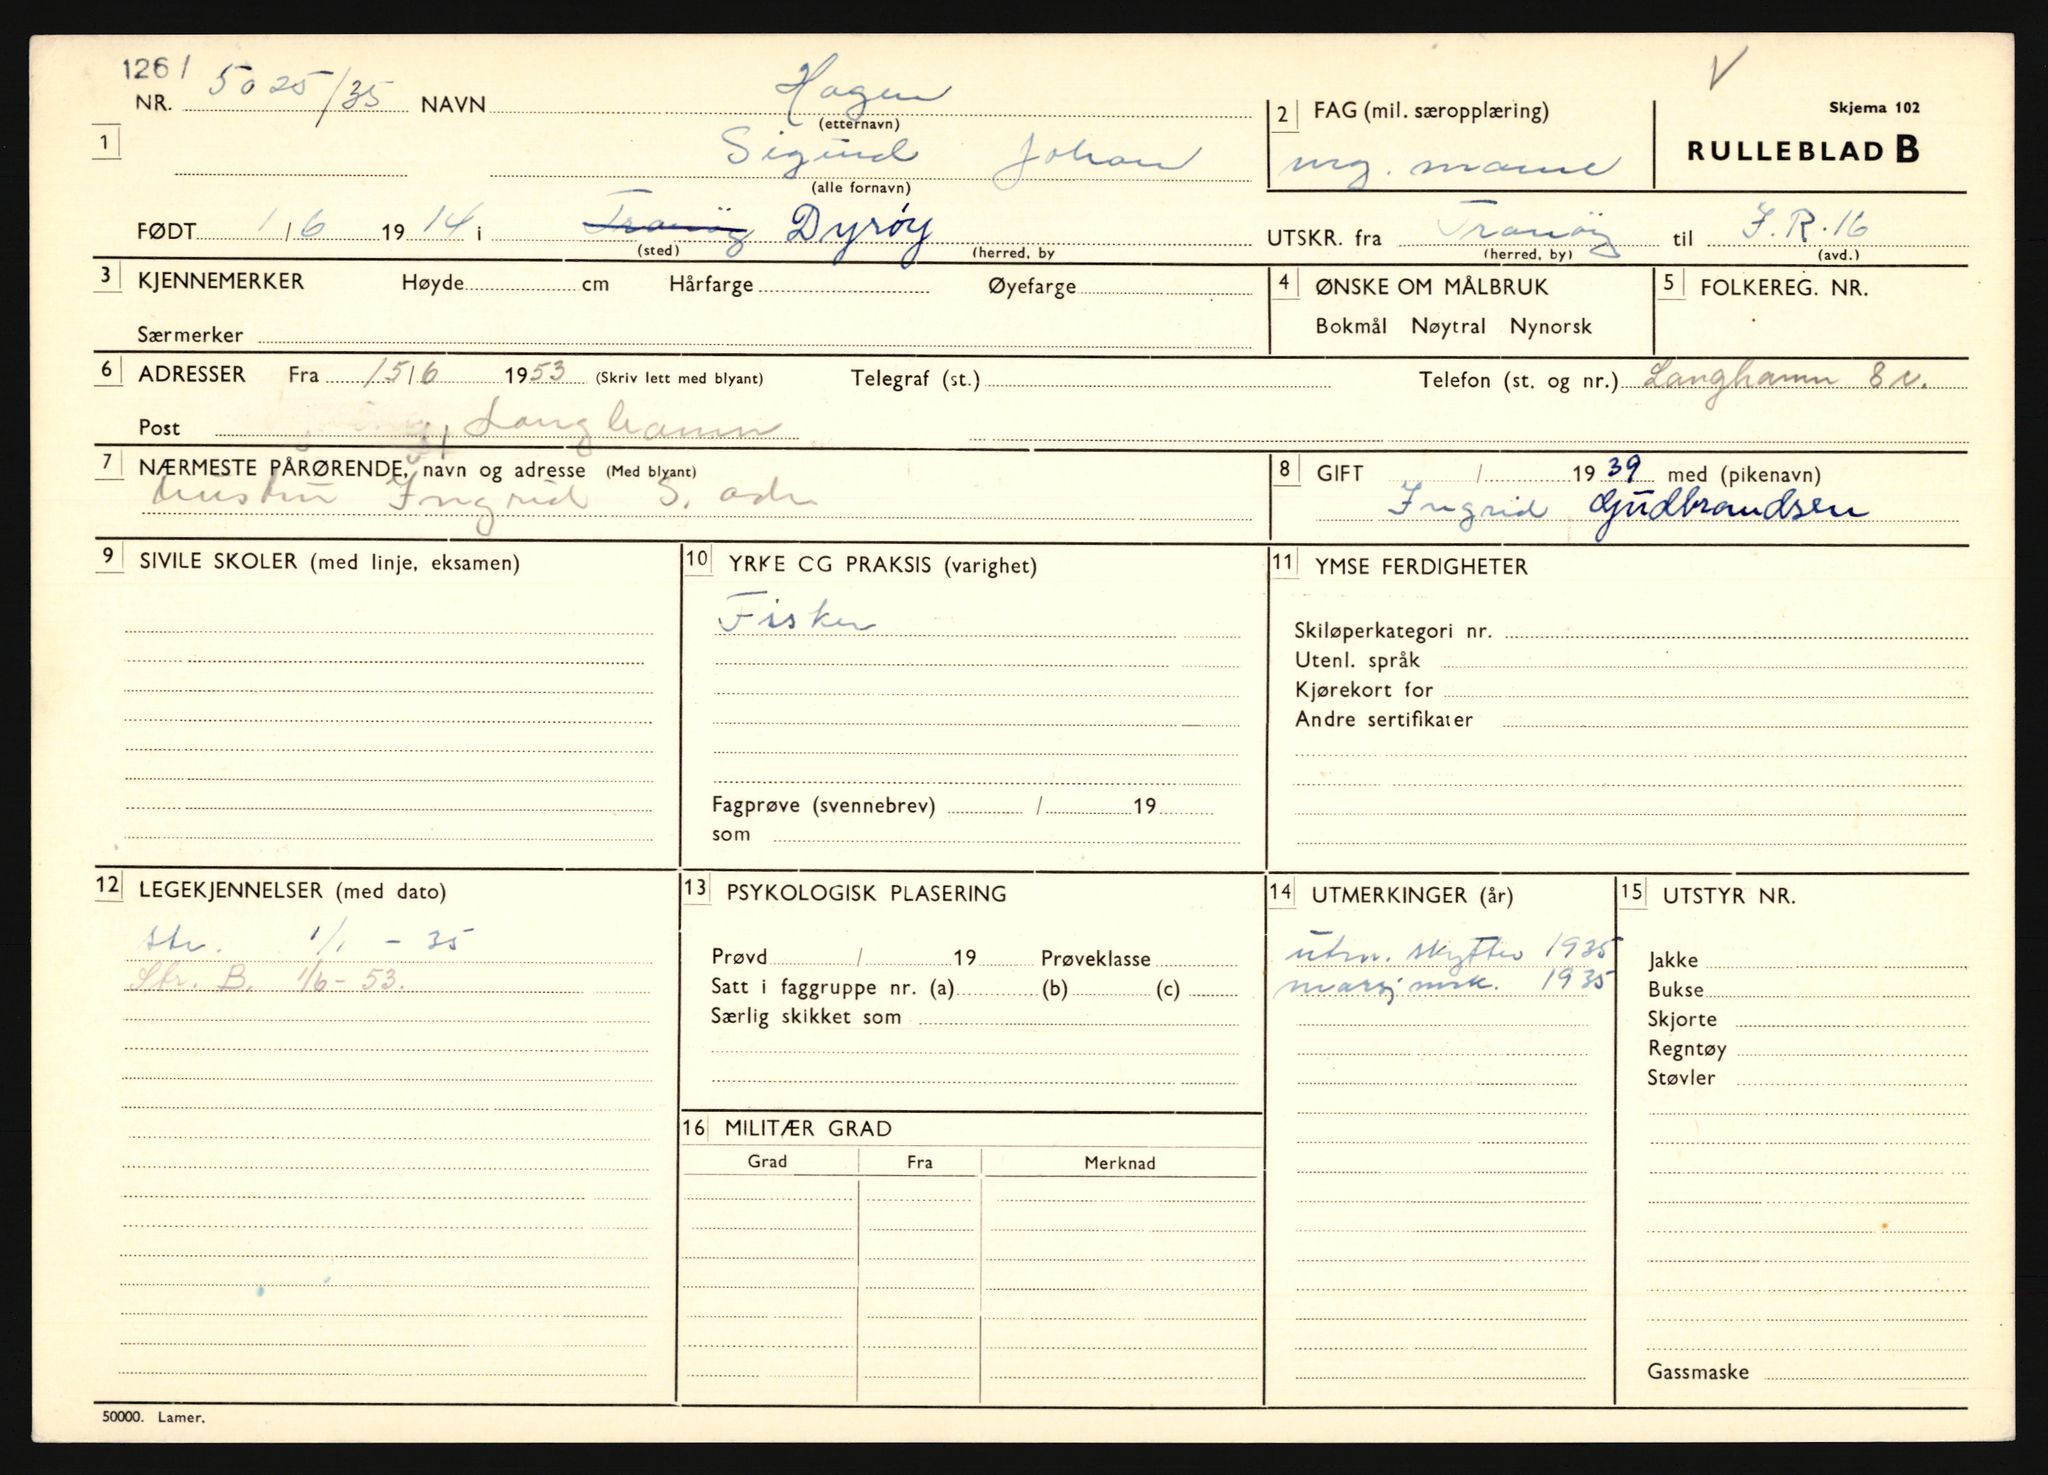 1261
NR. 5025/35 NAVN Hagen
(etternavn)
1 Sigurd Johan
(alle fornavn)
2 FAG (mil. særopplæring)
mg. mann
Skjema 102
RULLEBLAD B
V
FØDT 1/6 1914 i Tranöy Dyröy
(sted) (herred, by
UTSKR. fra Tranöy til I.R. 16
(herred, by) (avd.)
3 KJENNEMERKER Høyde cm Hårfarge Øyefarge
Særmerker
4 ØNSKE OM MÅLBRUK
Bokmål Nøytral Nynorsk
5 FOLKEREG. NR.
6 ADRESSER Fra 15/6 1953 (Skriv lett med blyant) Telegraf (st.) Telefon (st. og nr.) Langhamn 8 v.
Post Langhamn
7 NÆRMESTE PÅRØRENDE, navn og adresse (Med blyant)
hustru Ingrid S. adr
8 GIFT / 1939 med (pikenavn)
Ingrid Gudbrandsen
9 SIVILE SKOLER (med linje, eksamen)
10 YRKE CG PRAKSIS (varighet)
Fisker
Fagprøve (svennebrev) / 19
som
11 YMSE FERDIGHETER
Skiløperkategori nr.
Utenl. språk
Kjørekort for
Andre sertifikater
12 LEGEKJENNELSER (med dato)
str. 1/1 - 35
Str. B. 1/6 - 53.
13 PSYKOLOGISK PLASERING
Prøvd / 19 Prøveklasse
Satt i faggruppe nr. (a) (b) (c)
Særlig skikket som
14 UTMERKINGER (år)
utm. skytter 1935
marsj mrk. 1935
15 UTSTYR NR.
Jakke
Bukse
Skjorte
Regntøy
Støvler
Gassmaske
16 MILITÆR GRAD
Grad Fra Merknad
50000. Lamer.